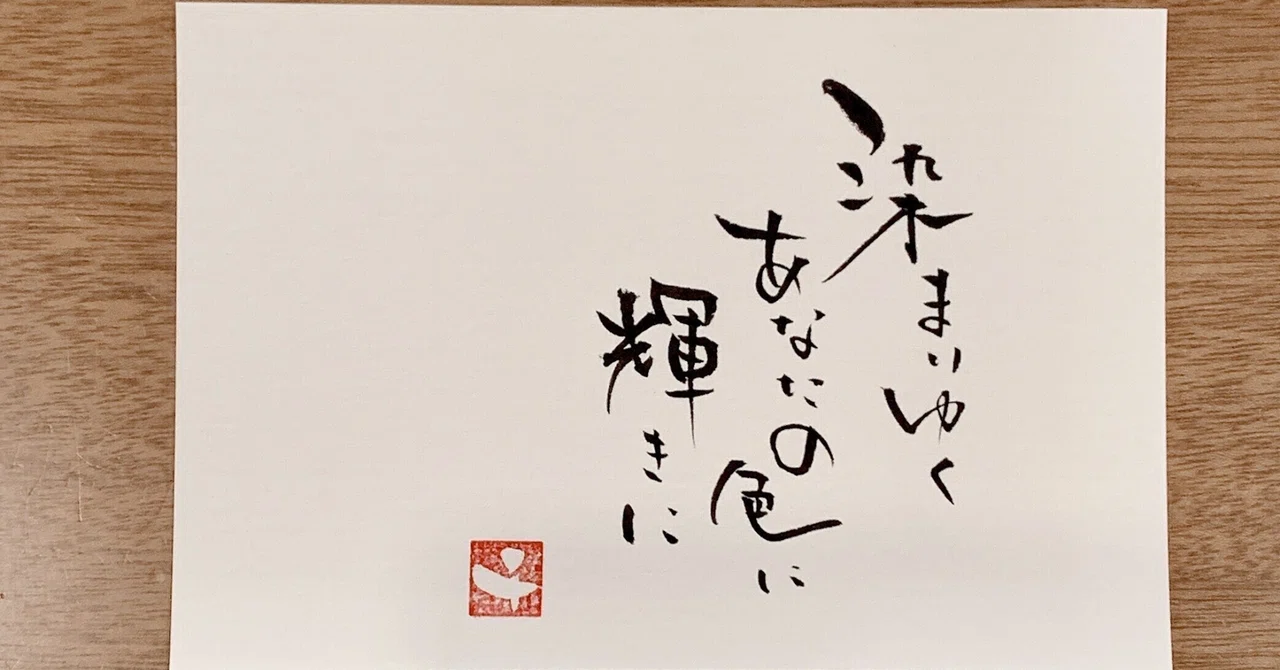 染まりゆく
あなたの色に
輝きに